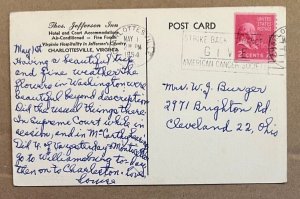 Thos. Jefferson Inn
Hotel and Court Accommodations
Air-Conditioned - Fine Foods
Virginia Hospitality in Jefferson's Country
CHARLOTTESVILLE, VIRGINIA
POST CARD
CHARLOTTESVILLE
MAY 1
PM
1954
STRIKE BACK
GIVE
AMERICAN CANCER SOCIETY
May 1st
Having a beautiful trip
and fine weather the
flowers in Washington were
beautiful beyond description
Did the usual things there
In Supreme Court while in
session, and in McCarthy hearing
Did U. of Va yesterday Monticello
go to Williamsburg to-day
then on to Charleston. Love
Louise
Mrs W. J. Burger
2971 Brighton Rd
Cleveland 22, Ohio